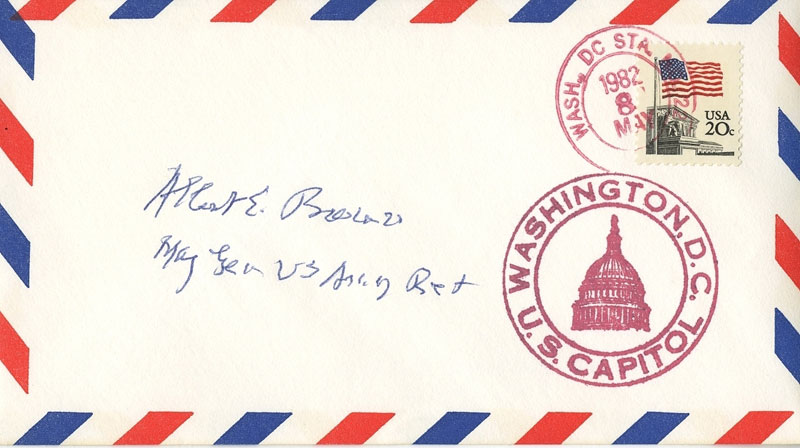 WASH., DC STA.
1982
8
MAY
USA
20c
Albert E. Brown
Maj Gen US Army Ret
WASHINGTON, D.C.
U.S. CAPITOL